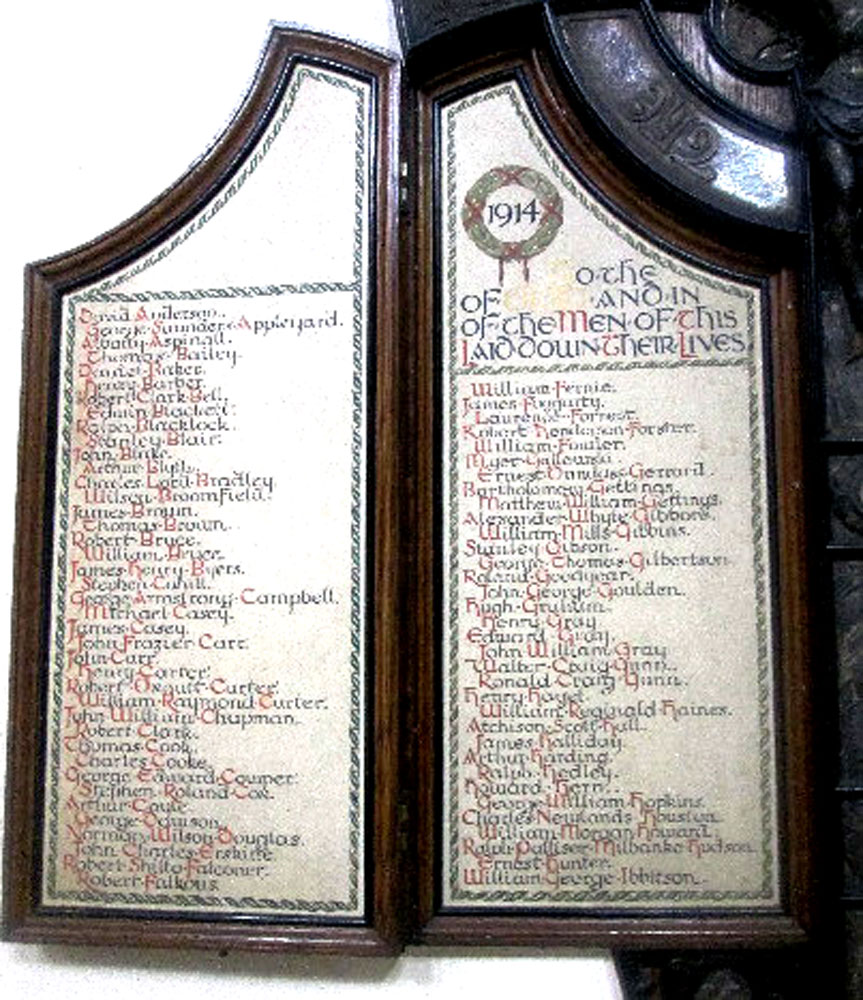 David Anderson.
George Saunders Appleyard.
Aspinall.
Thomas Bailey.
Daniel Baker.
Henry Barber.
Robert Clark Bell.
Edwin Blackett.
Ralph Blacklock.
Stanley Blair.
John Blake.
Arthur Blyth.
Charles Bradley.
Wilson Broomfield.
James Brown.
Thomas Brown.
Robert Bryce.
William Bryce.
James Henry Byers.
Stephen Cahill.
George Armstrong Campbell.
Michael Casey.
James Casey.
John Frazier Carr.
John Carr.
Henry Carter.
Robert Carter.
William Raymond Carter.
John William Chapman.
Robert Clark.
Thomas Cook.
Charles Cooke.
George Edward Cowper.
Stephen Roland Cox.
Arthur Coyle.
George Dawson.
Norman Wilson Douglas.
John Charles Erskine.
Robert Shilto Falconer.
Robert Falkous.
1914
To the
OF AND IN
OF the MEN OF this
LAID DOWN their LIVES.
William Fernie.
James Foggarty.
Laurence Forrest.
Robert Henderson Forster.
William Fowler.
Myer
Ernest Dundas Gerrard.
Bartholomew Gettings.
Matthew William Gettings.
Alexander Whyte Gibbons.
William Mills Gibbins.
Stanley Gibson.
George Thomas Gilbertson.
Roland Goodyear.
John George Goulden.
Hugh Graham.
Henry Gray.
Edward Gray.
John William Gray
Walter Craig Gunn.
Ronald Craig Gunn.
Henry
William Reginald Haines.
Aitchison Scott Hall.
James Halliday.
Arthur Harding.
Ralph Hedley.
Howard Hern.
George William Hopkins.
Charles Newlands Houston.
William Morgan Howard.
Ralph Palliser Milbanke Hudson.
Ernest Hunter.
William George Ibbitson.